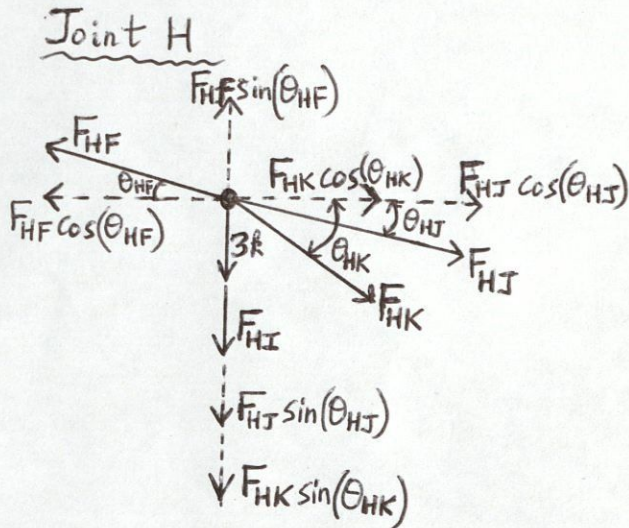 Joint H
F_HF sin(θ_HF)
F_HF
θ_HF
F_HK cos(θ_HK)
F_HJ cos(θ_HJ)
F_HF cos(θ_HF)
θ_HJ
3k
θ_HK
F_HJ
F_HK
F_HI
F_HJ sin(θ_HJ)
F_HK sin(θ_HK)